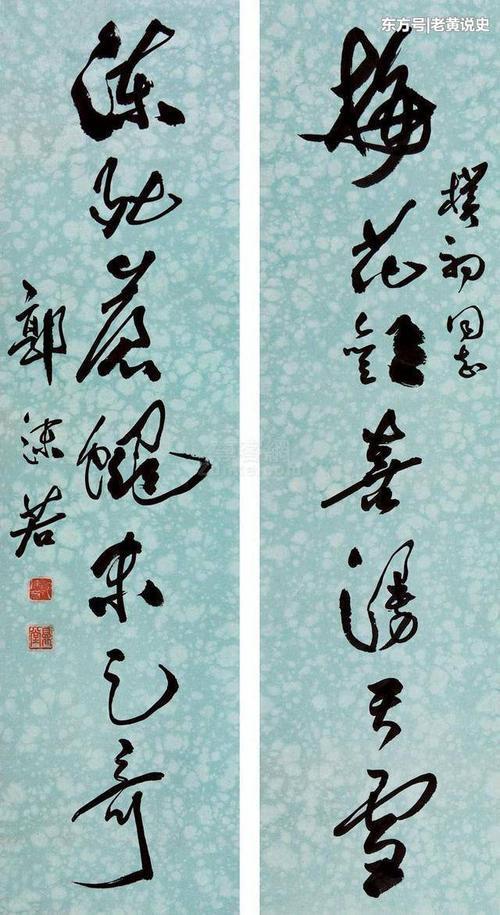 东方号|老黄说史
梅花歡喜漫天雪
樸初同志
凍死蒼蠅未足奇
郭沫若